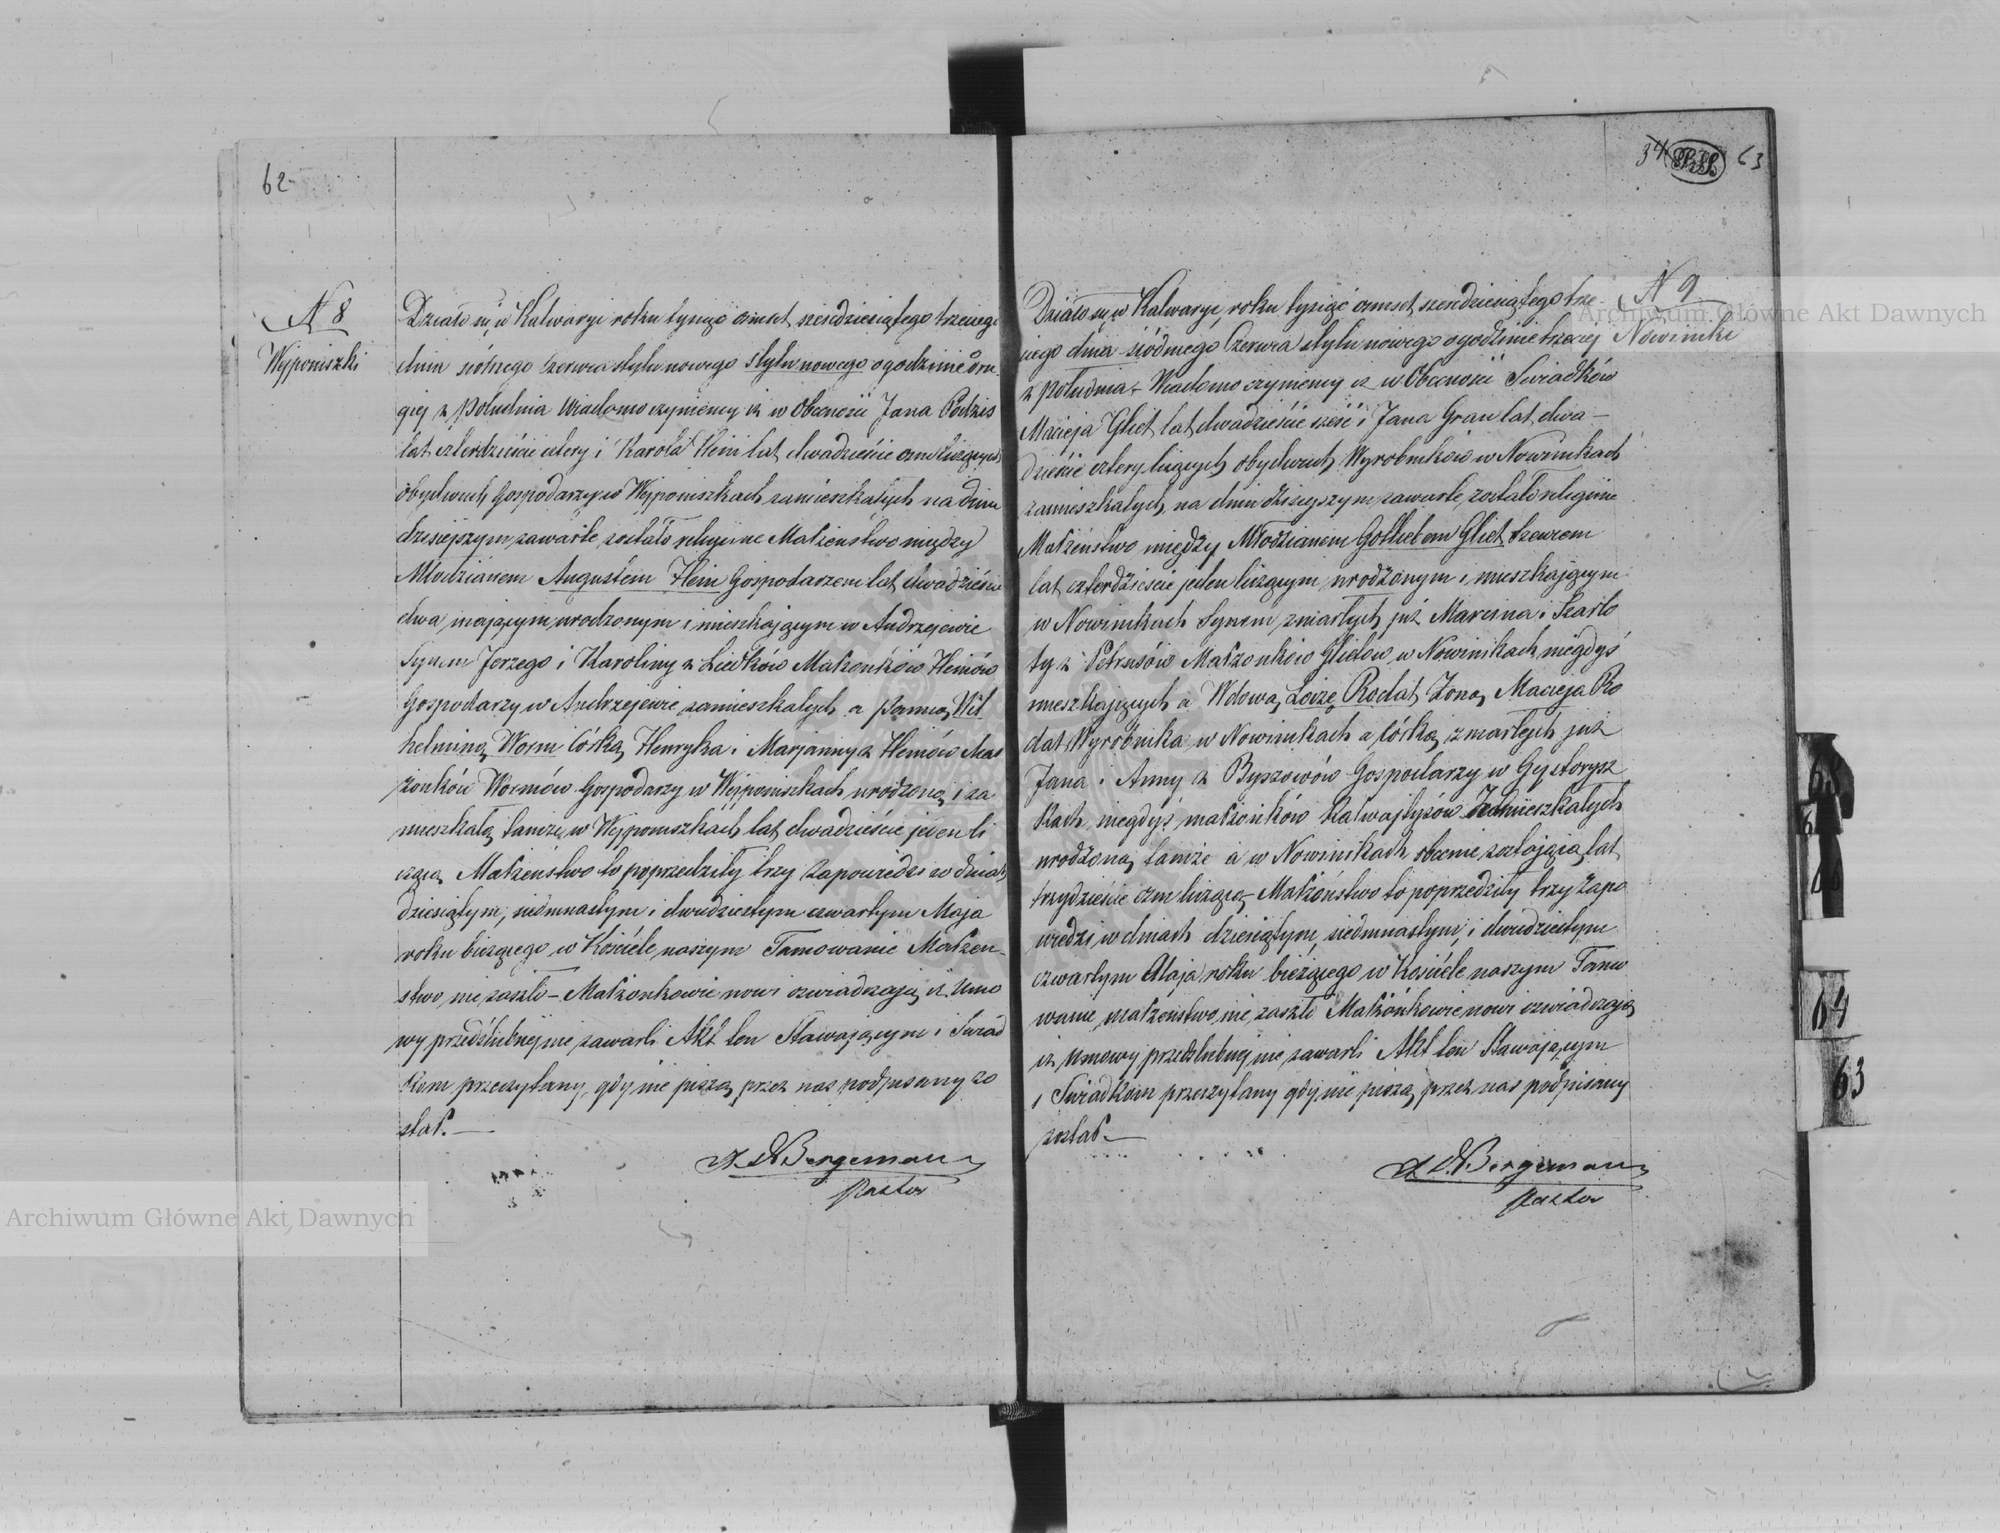 62
N 8
Wyponiszki
Działo się w Kalwaryi roku tysiąc ośmset sześdziesiątego trzeciego
dnia siódmego czerwca stylu nowego stylu nowego o godzinie dru-
giej z południa Wiadomo czyniemy iż w Obecności Jana Podzis
lat czterdzieście cztery i Karola Hein lat dwadzieście ośm liczących
obydwuch Gospodarzy w Wyponiszkach zamieszkałych na dniu
dzisiejszym zawarte zostało religijne Małżeństwo między
Młodzianem Augustem Hein Gospodarzem lat dwadzieście
dwa mającym urodzonym i mieszkającym w Andrzejewie
Synem Jerzego i Karoliny z Liedków Małżonków Heinów
Gospodarzy w Andrzejewie zamieszkałych a Panną Wil
helminą Worm Córką Henryka i Marjanny z Heinów Mał
żonków Wormów Gospodarzy w Wyponiszkach urodzoną i za
mieszkałą tamże w Wyponiszkach lat dwadzieście jeden li
czącą Małżeństwo to poprzedziły trzy Zapowiedzi w dniach
dziesiątym, siedmnastym i dwudziestym czwartym Maja
roku bieżącego w Kościele naszym Tamowanie Małżen-
stwo nie zaszło – Małżonkowie nowi oświadczają iż Umo
wy przedślubnej nie zawarli Akt ten Stawającym i Świad
kom przeczytany, gdy nie piszą przez nas podpisany zo
stał. —
A. D. Bergemann
Pastor
34 63
N 9
Nowiniki
Działo się w Kalwaryi, roku tysiąc ośmset sześdziesiątego trze-
ciego dnia siódmego Czerwca stylu nowego o godzinie trzeciej
z południa – Wiadomo czyniemy iż w Obecności Świadków
Macieja Gliet lat dwadzieście sześć i Jana Grau lat dwa –
dzieście cztery liczących obydwuch Wyrobników w Nowinikach
zamieszkałych, na dniu dzisiejszym zawarte zostało religijne
Małżeństwo między Młodzianem Gottliebem Gliet Szewcem
lat czterdzieście jeden liczącym urodzonym i mieszkającym
w Nowinikach Synem zmarłych już Marcina i Szarlo
ty z Petrusów Małżonków Glietów w Nowinikach niegdyś
mieszkających a Wdową Loizę Rodat Żoną Macieja Ro
dat Wyrobnika w Nowinikach a Córką zmarłych już
Jana i Anny z Byszowów Gospodarzy w Gystorysz
kach niegdyś małżonków Kalwajtysów Zamieszkałych
urodzoną tamże a w Nowinikach obecnie zostającą lat
trzydzieście ośm liczącą – Małżeństwo to poprzedziły trzy Zapo
wiedzi w dniach dziesiątym, siedmnastym, i dwudziestym
czwartym Maja roku bieżącego w Kościele naszym Tamo
wanie małżeństwo nie zaszło Małżonkowie nowi oświadczają
iż Umowy przedślubnej nie zawarli Akt ten Stawającym
i Świadkom przeczytany gdy nie piszą przez nas podpisany
został —
A. D. Bergemann
Pastor
64
63
Archiwum Główne Akt Dawnych
Archiwum Główne Akt Dawnych